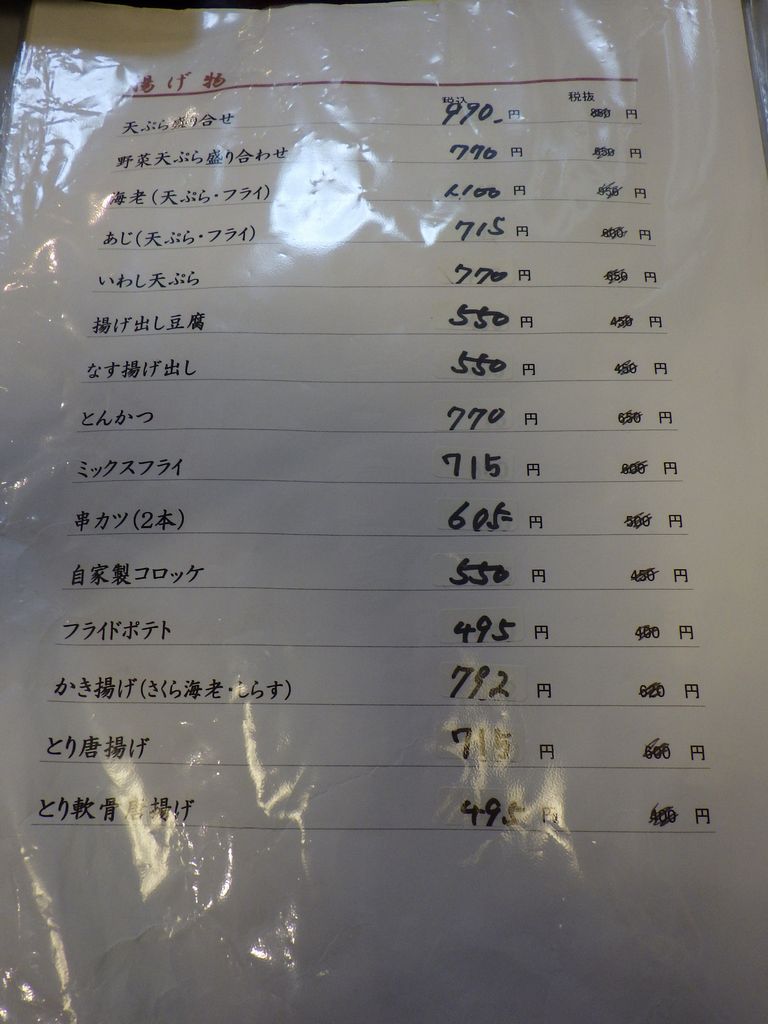 揚げ物
税込 税抜
天ぷら盛り合せ 990 円 円
野菜天ぷら盛り合わせ 770 円 円
海老(天ぷら・フライ) 1,100 円 円
あじ(天ぷら・フライ) 715 円 円
いわし天ぷら 770 円 円
揚げ出し豆腐 550 円 450 円
なす揚げ出し 550 円 450 円
とんかつ 770 円 650 円
ミックスフライ 715 円 円
串カツ(2本) 605 円 500 円
自家製コロッケ 550 円 450 円
フライドポテト 495 円 400 円
かき揚げ(さくら海老・しらす) 792 円 円
とり唐揚げ 715 円 600 円
とり軟骨唐揚げ 495 円 400 円